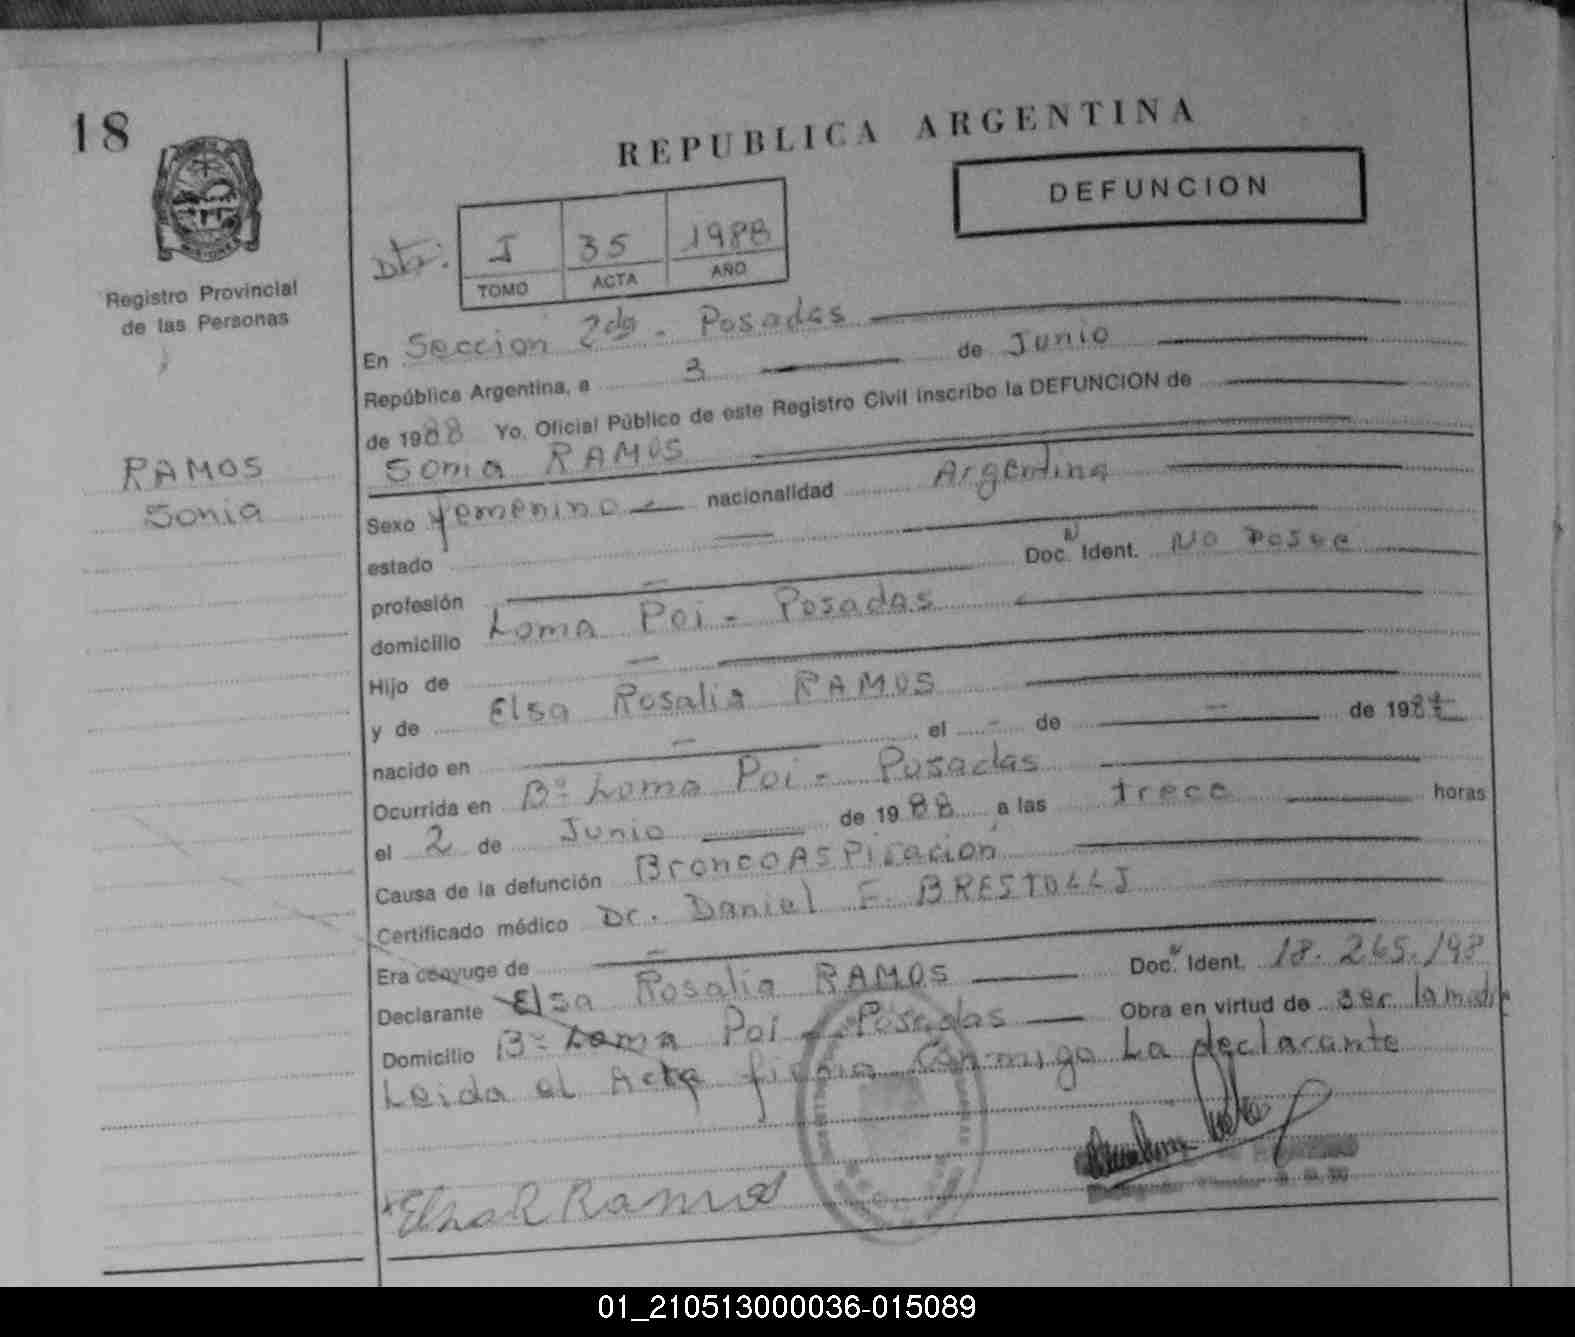 18
REPUBLICA ARGENTINA
DEFUNCION
Dto:
I 35 1988
TOMO ACTA AÑO
Registro Provincial
de las Personas
RAMOS
Sonia
En Seccion 2da - Posadas
República Argentina, a 3 de Junio
de 1988 Yo, Oficial Público de este Registro Civil inscribo la DEFUNCION de
Sonia RAMOS
Sexo femenino nacionalidad Argentina
estado
profesión — Doc. N Ident. No Posee
domicilio Loma Poi - Posadas
Hijo de —
y de Elsa Rosalia RAMOS
nacido en — el - de — de 198
Ocurrida en Bº Loma Poi - Posadas
el 2 de Junio de 1988 a las trece horas
Causa de la defunción BroncoAspiración
Certificado médico Dr. Daniel F. BRESTOLLI
Era cónyuge de —
Declarante Elsa Rosalia RAMOS Doc. N Ident. 18.265.198
Domicilio Bº Loma Poi - Posadas Obra en virtud de ser la madre
Leida el Acta firma Conmigo La declarante
Elsa R Ramos
01_210513000036-015089